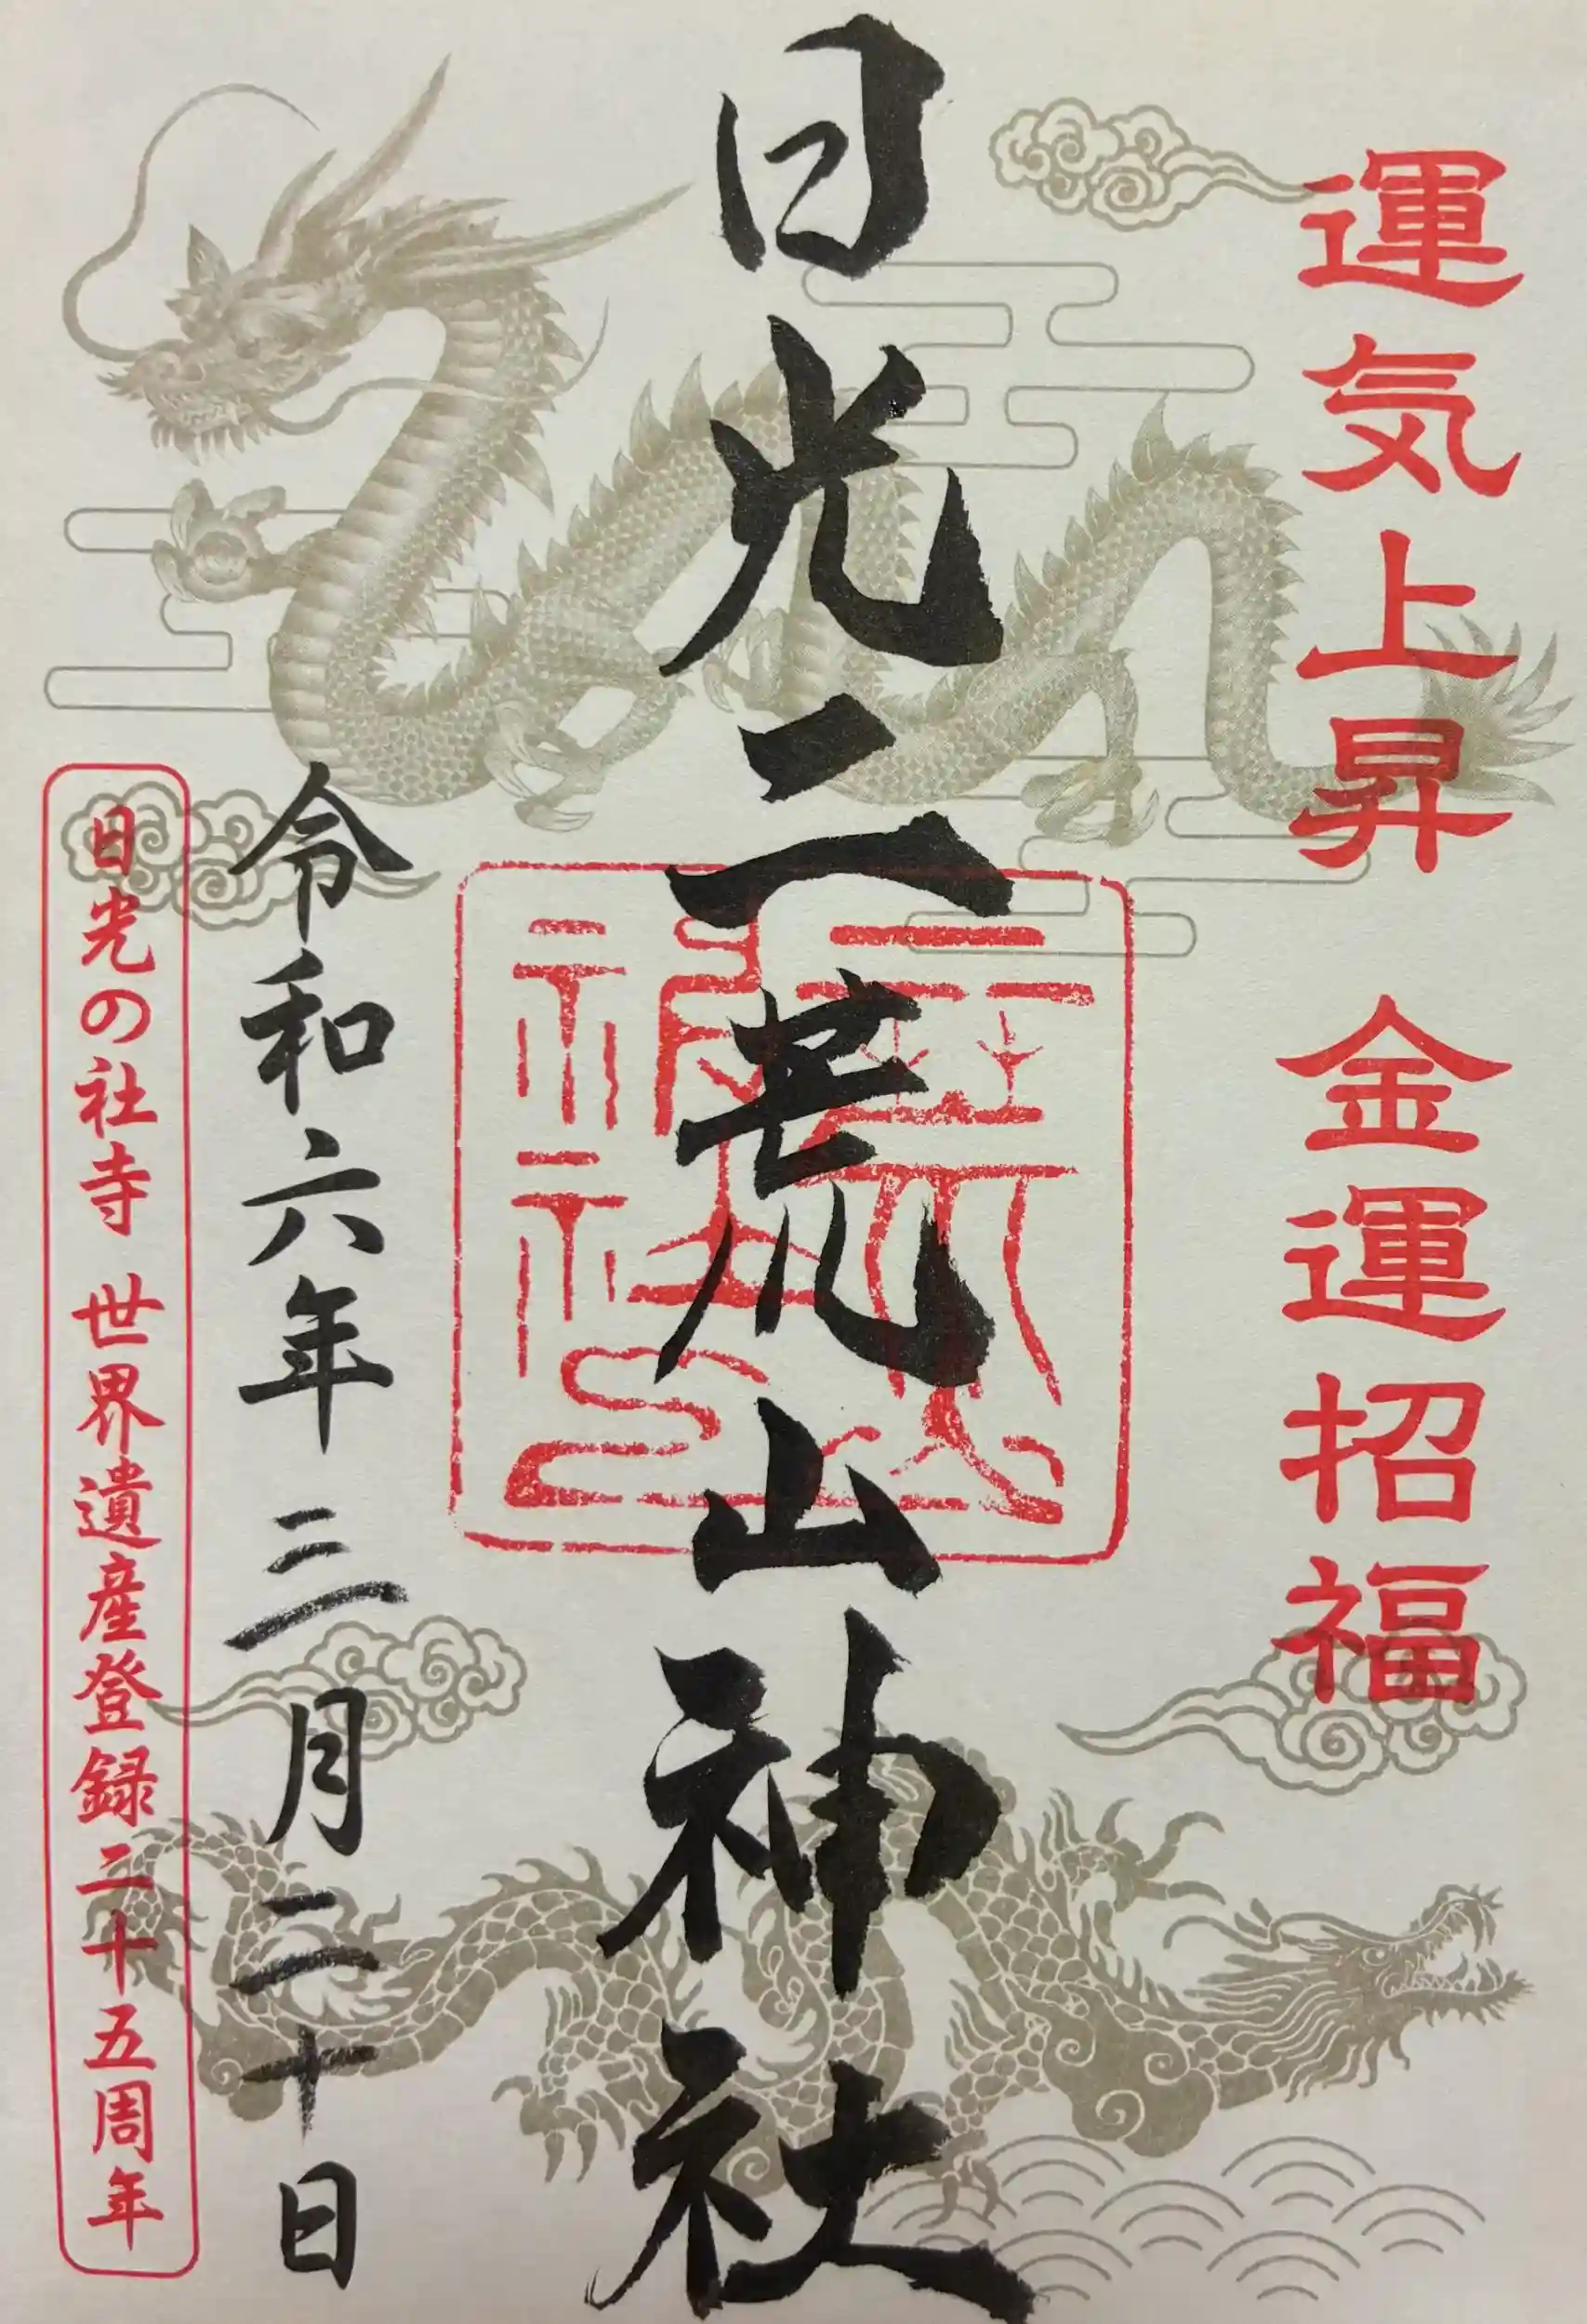 運気上昇 金運招福
日光二荒山神社
令和六年三月二十日
日光の社寺 世界遺産登録二十五周年